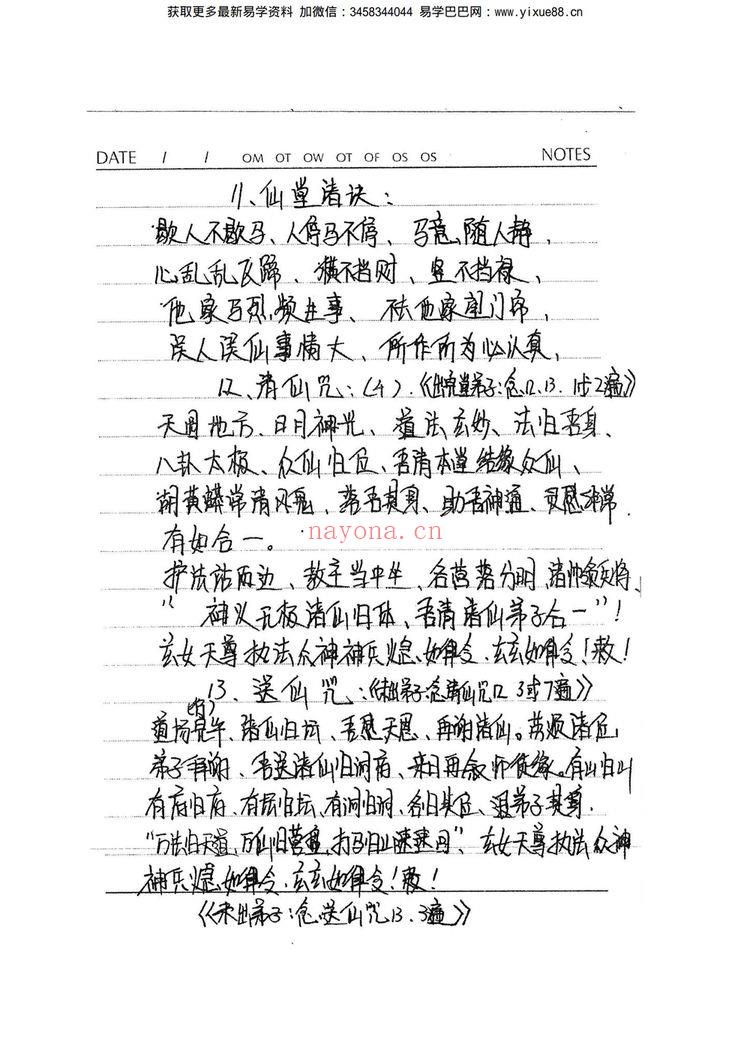 获取更多最新易学资料 加微信：3458344044 易学巴巴网：www.yixue88.cn
DATE / / OM OT OW OT OF OS OS NOTES
11、仙堂诸诀：
歇人不歇马、人停马不停、马意随人静，
心乱乱瓦蹄、横不挡财、竖不挡禄，
他家马烈频生事、祛他家塑门帘，
误人误仙事情大、所作所为必认真，
12、请仙咒：(4)．《出完堂弟子：念12、13. 1或2遍》
天圆地方、日月神光、道法玄妙、法归吾身、
八卦太极、众仙归位、吾请本堂结缘众仙、
胡黄蟒常清风鬼、
助吾神通、灵感非常
有如合一。
nayona.cn
护法站两边、教主当中坐、各营落分明、
“神义无极诸仙归体、吾请诸仙弟子合一”！
玄女天尊执法众神神兵火急如律令．玄玄如律令！敕！
13、送仙咒：《未出弟子：念请仙咒12 3或7遍》
道场完毕、诸仙归坛、吾感天恩、再谢诸仙。劳烦诸位
弟子再谢、吾送诸仙归洞府、来日再会
有山归山
有府归府、有坛归坛、有洞归洞、各归其位、
“万法归天道、万仙归营盘、打马归山速速回”、玄女天尊执法众神
神兵火急如律令．玄玄如律令！敕！
《未出弟子：念送仙咒13. 3遍》